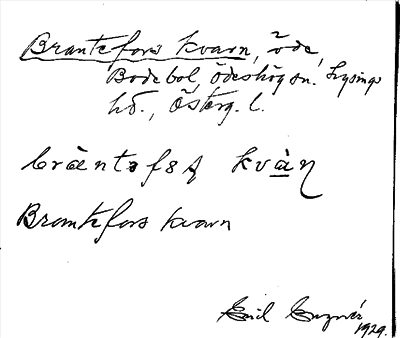 Brantefors kvarn, öde,
Bodebol, Ödeshög sn. Lysings
hd., Österg. l.
bràntəfsʃ kvàɳ
Brantefors kvarn
Emil
1929.